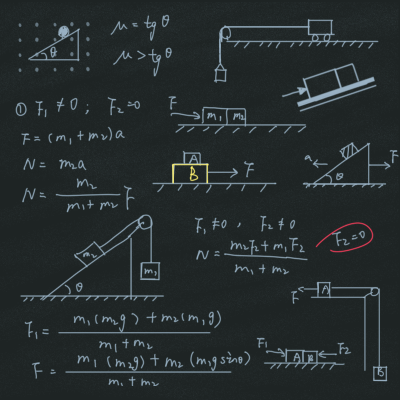 θ
μ = tgθ
μ > tgθ
① F₁ ≠ 0 ; F₂=0
F = (m₁+m₂)a
N = m₂a
N = m₂/(m₁+m₂) F
F
m₁ m₂
A
B
F
a
F
θ
F₁≠0, F₂≠0
N = (m₂F₁+m₁F₂)/(m₁+m₂)
F₂=0
m₂
m₁
θ
F₁ = (m₁(m₂g) + m₂(m₁g))/(m₁+m₂)
F = (m₁(m₂g) + m₂(m₁g sinθ))/(m₁+m₂)
F
A
B
F₁
A B
F₂